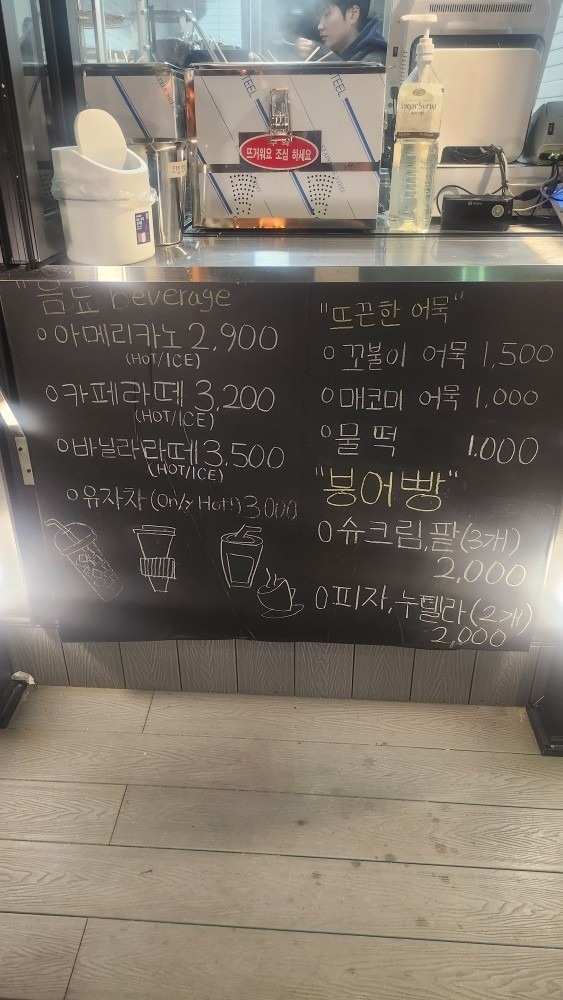 뜨거워요 조심 하세요
Sugar Syrup
"음료 beverage"
○ 아메리카노 2,900
(HOT/ICE)
○ 카페라떼 3,200
(HOT/ICE)
○ 바닐라라떼 3,500
(HOT/ICE)
○ 유자차 (Only Hot!) 3,000
"뜨끈한 어묵"
○ 꼬불이 어묵 1,500
○ 매코미 어묵 1,000
○ 물떡 1,000
"붕어빵"
○ 슈크림,팥(3개)
2,000
○ 피자,누텔라(2개)
2,000